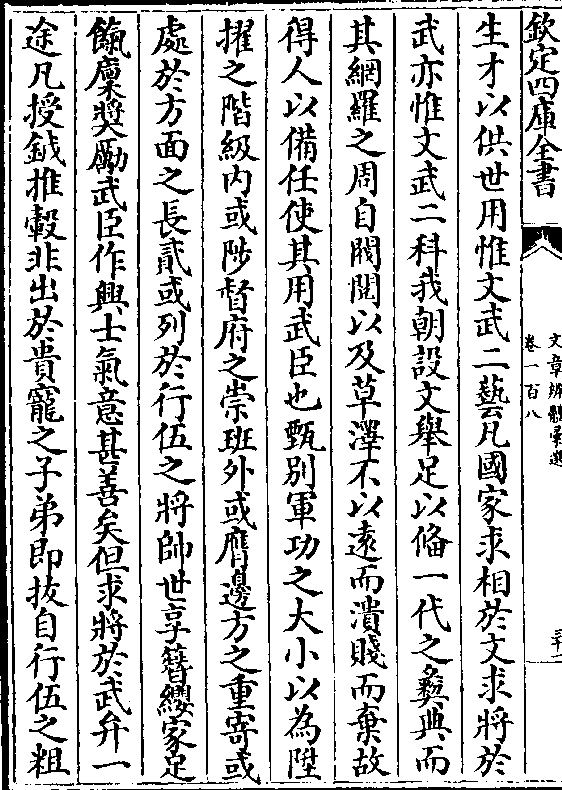 欽定四庫全書
文章辨體彙選
卷一百八
三十一
生才以供世用惟文武二藝凡國家求相於文求將於
武亦惟文武二科我朝設文舉足以備一代之彝典而
其網羅之周自閥閱以及草澤不以遠而潰賤而棄故
得人以備任使其用武臣也甄別軍功之大小以為陞
擢之階級内或陟督府之崇班外或膺邊方之重寄或
處於方面之長貳或列於行伍之將帥世享簪纓家足
餼廩奬勵武臣作興士氣意甚善矣但求將於武弁一
途凡授鉞推轂非出於貴寵之子弟即拔自行伍之粗